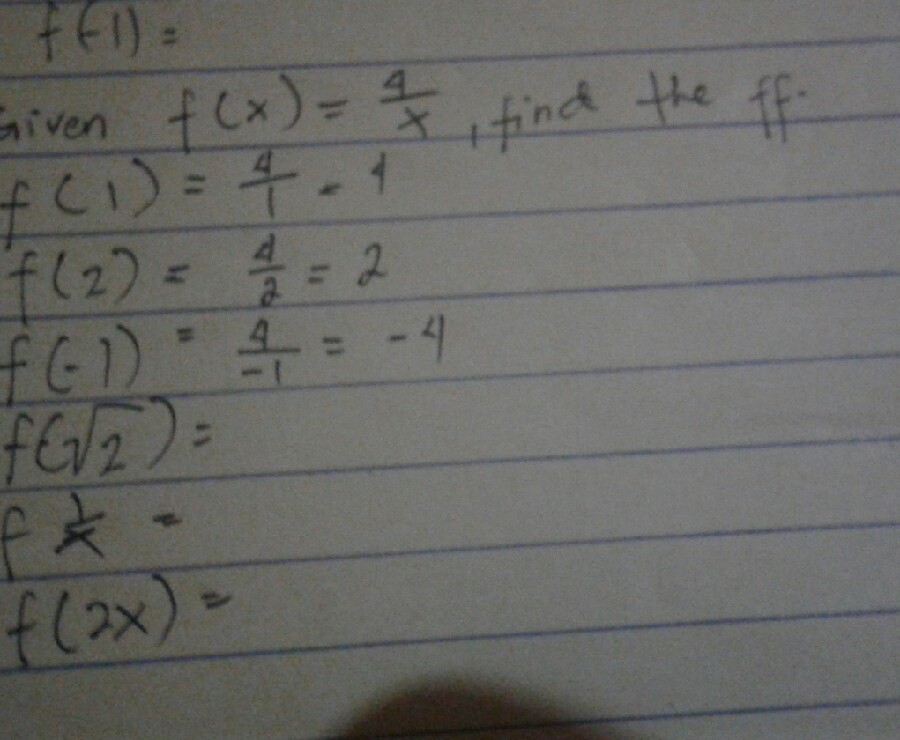 f(-1) =
Given f(x) = 4/x, find the ff.
f(1) = 4/1 = 4
f(2) = 4/2 = 2
f(-1) = 4/-1 = -4
f(√2) =
f 1/x =
f(2x) =